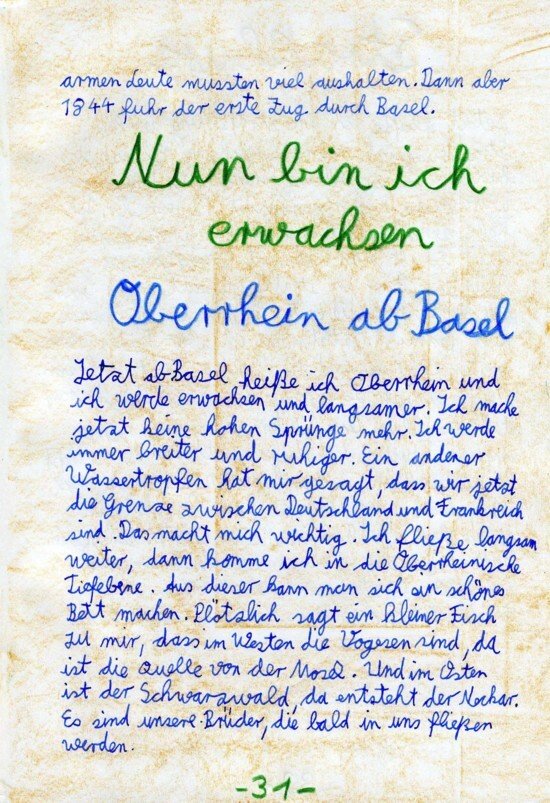 armen Leute mussten viel aushalten. Dann aber
1844 fuhr der erste Zug durch Basel.
Nun bin ich
erwachsen
Oberrhein ab Basel
Jetzt ab Basel heiße ich Oberrhein und
ich werde erwachsen und langsamer. Ich mache
jetzt keine hohen Sprünge mehr. Ich werde
immer breiter und ruhiger. Ein anderer
Wassertropfen hat mir gesagt, dass wir jetzt
die Grenze zwischen Deutschland und Frankreich
sind. Das macht mich wichtig. Ich fließe langsam
weiter, dann komme ich in die Oberrheinische
Tiefebene. Aus dieser kann man sich ein schönes
Bett machen. Plötzlich sagt ein kleiner Fisch
zu mir, dass im Westen die Vogesen sind, da
ist die Quelle von der Mosel. Und im Osten
ist der Schwarzwald, da entsteht der Neckar.
Es sind unsere Brüder, die bald in uns fließen
werden.
-31-